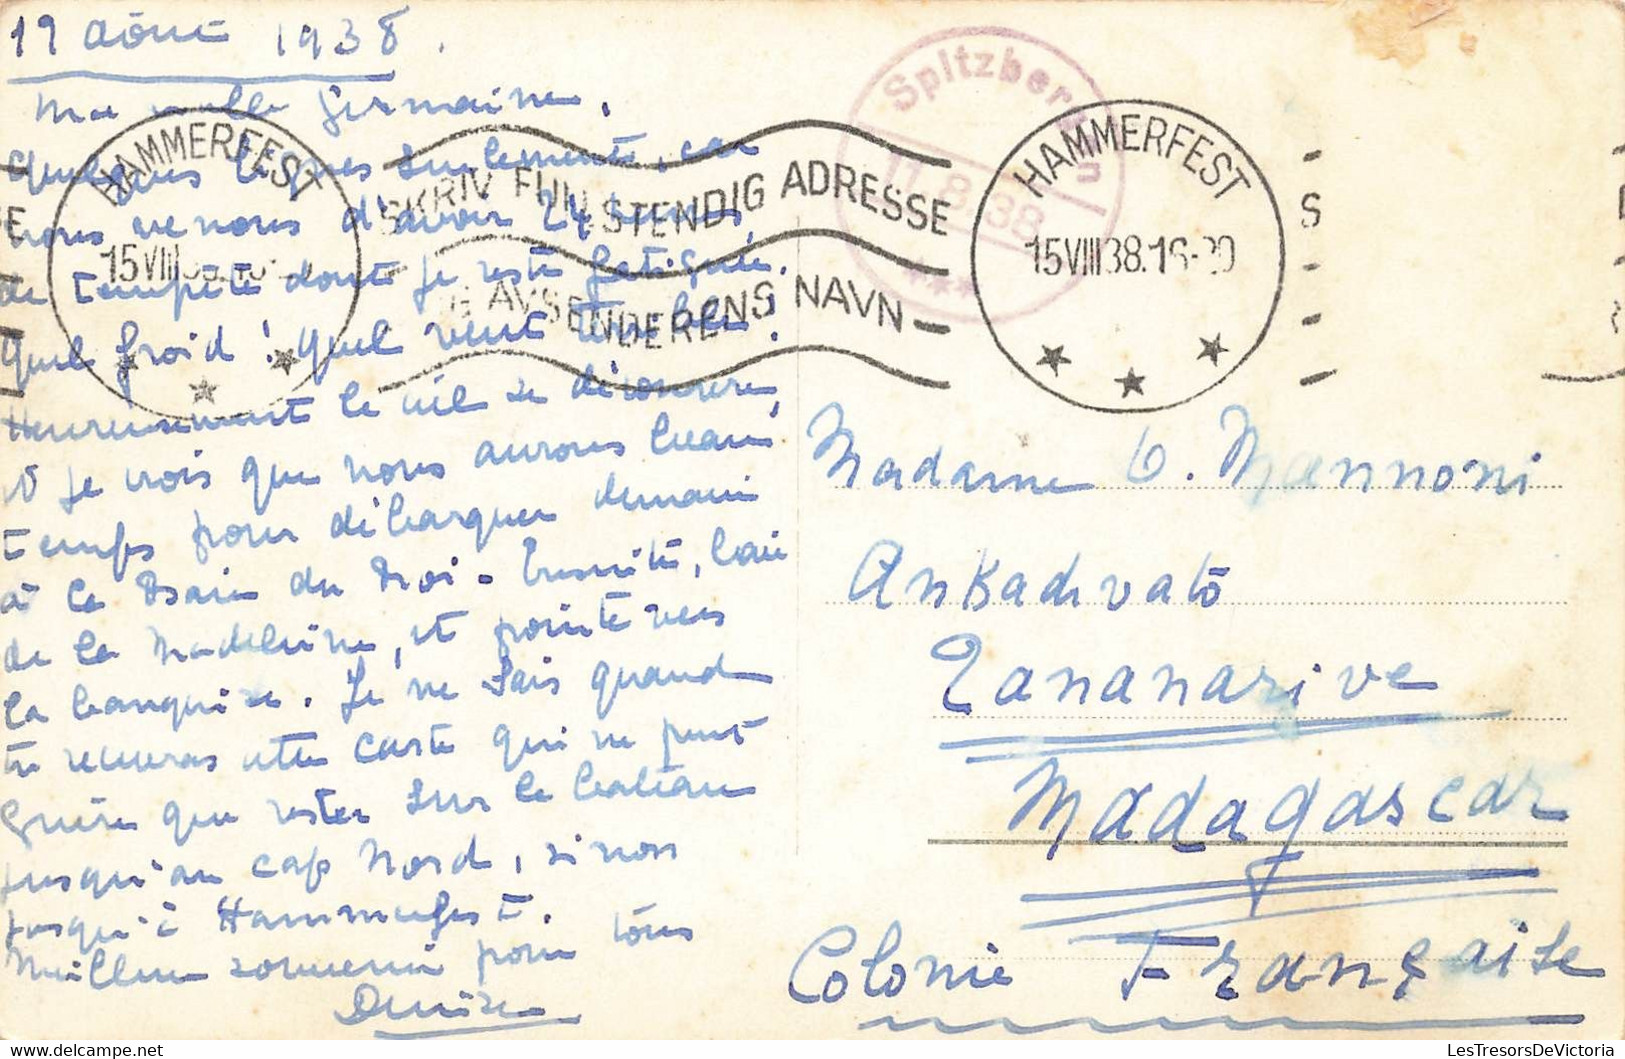 11 Août 1938.
Ma vieille Germaine,
Quelques lignes seulement, car
nous venons d'avoir 24 heures
de tempête dont je reste fatiguée.
Quel froid ! Quel vent terrible !
Heureusement le ciel se découvre,
et je crois que nous aurons beau
temps pour débarquer demain
à la Baie du Roi - ensuite, baie
de la Madeleine, et pointe vers
la banquise. Je ne sais quand
tu recevras cette carte qui ne peut
guère que rester sur le bateau
jusqu'au cap Nord, sinon
jusqu'à Hammerfest.
Meilleur souvenir pour tous
Denise
HAMMERFEST
15 VIII
SKRIV FULLSTENDIG ADRESSE
OG AVSENDERENS NAVN
Spitzbergen
11.8.38
HAMMERFEST
15 VIII 38.16-20
S
Madame O. Mannoni
Ankadivato
Tananarive
Madagascar
Colonie Française
LesTresorsDeVictoria